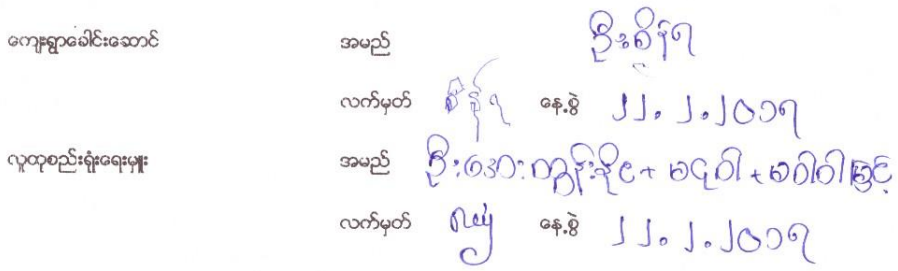 ကျေးရွာခေါင်းဆောင် အမည် ဦးစိန်ရ
လက်မှတ် စိန်ရ နေ့စွဲ ၂၂.၂.၂၀၁၇
လူထုစည်းရုံးရေးမှူး အမည် ဦးအေး + မငုဝါ + မဝါဝါမြင့်
လက်မှတ် နေ့စွဲ ၂၂.၂.၂၀၁၇